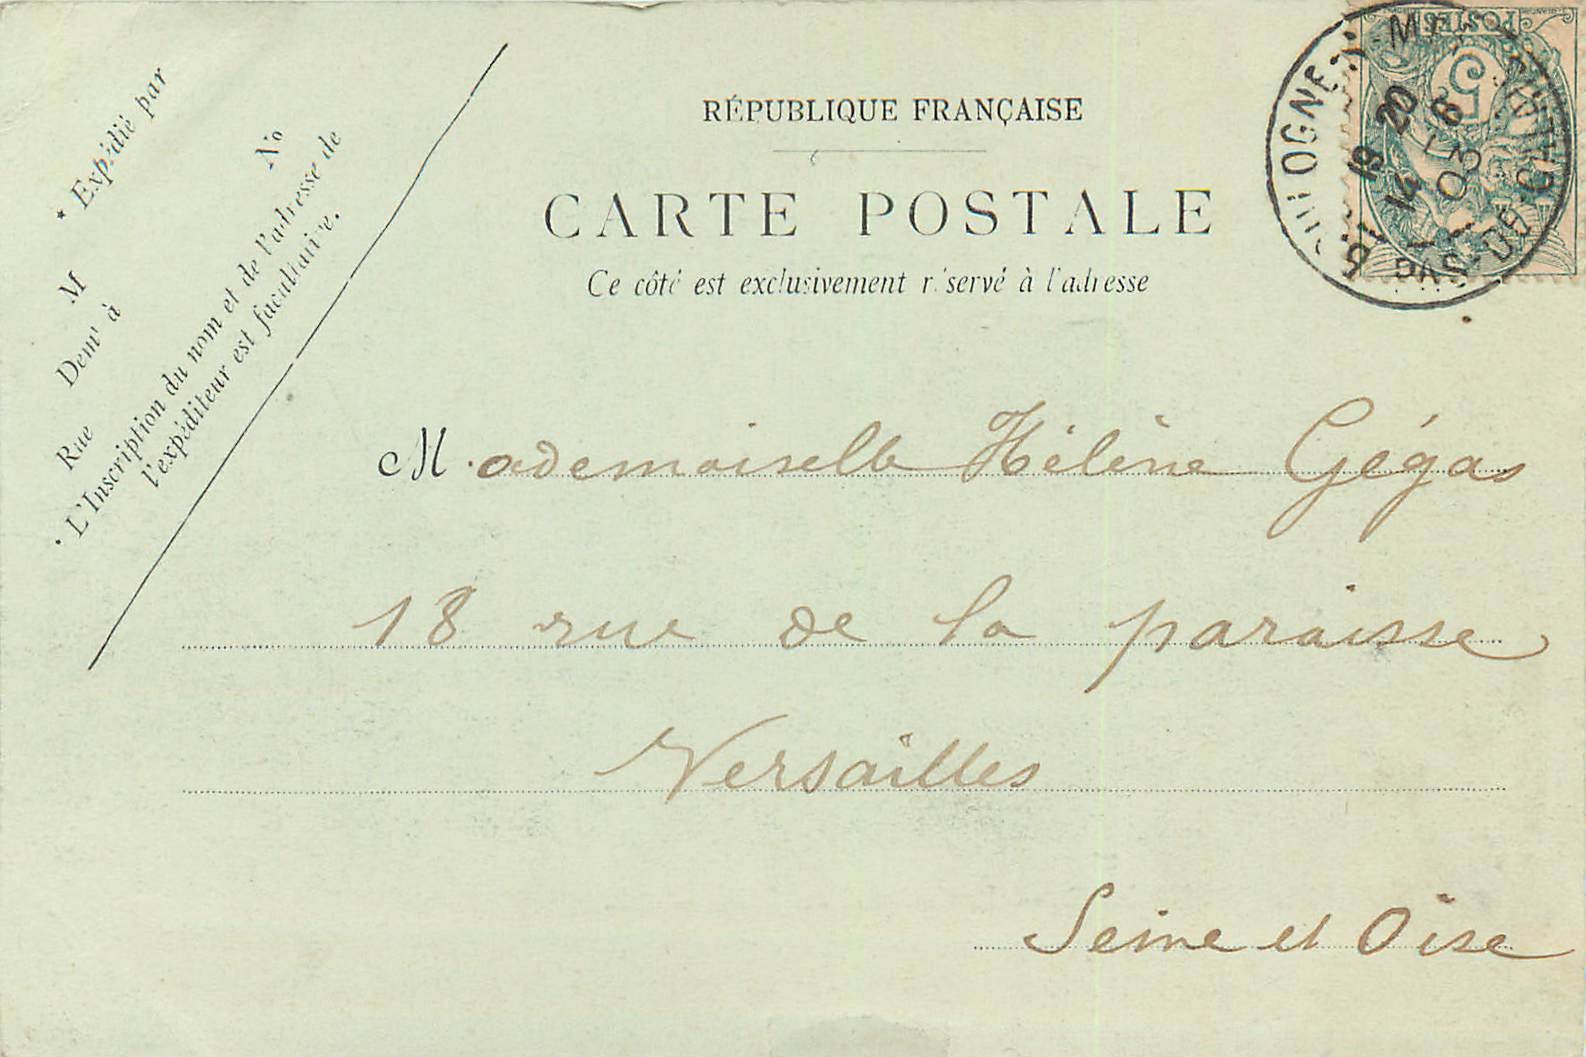 RÉPUBLIQUE FRANÇAISE
CARTE POSTALE
Ce côté est exclusivement réservé à l'adresse
* Expédié par
M
No
Demt à
Rue
* L'Inscription du nom et de l'adresse de
l'expéditeur est facultative.
POSTES
5
BOULOGNE-S-MER
PAS-DE-CALAIS
20
-6
03
Mademoiselle Hélène Gégas
18 rue de la paraisse
Versailles
Seine et Oise